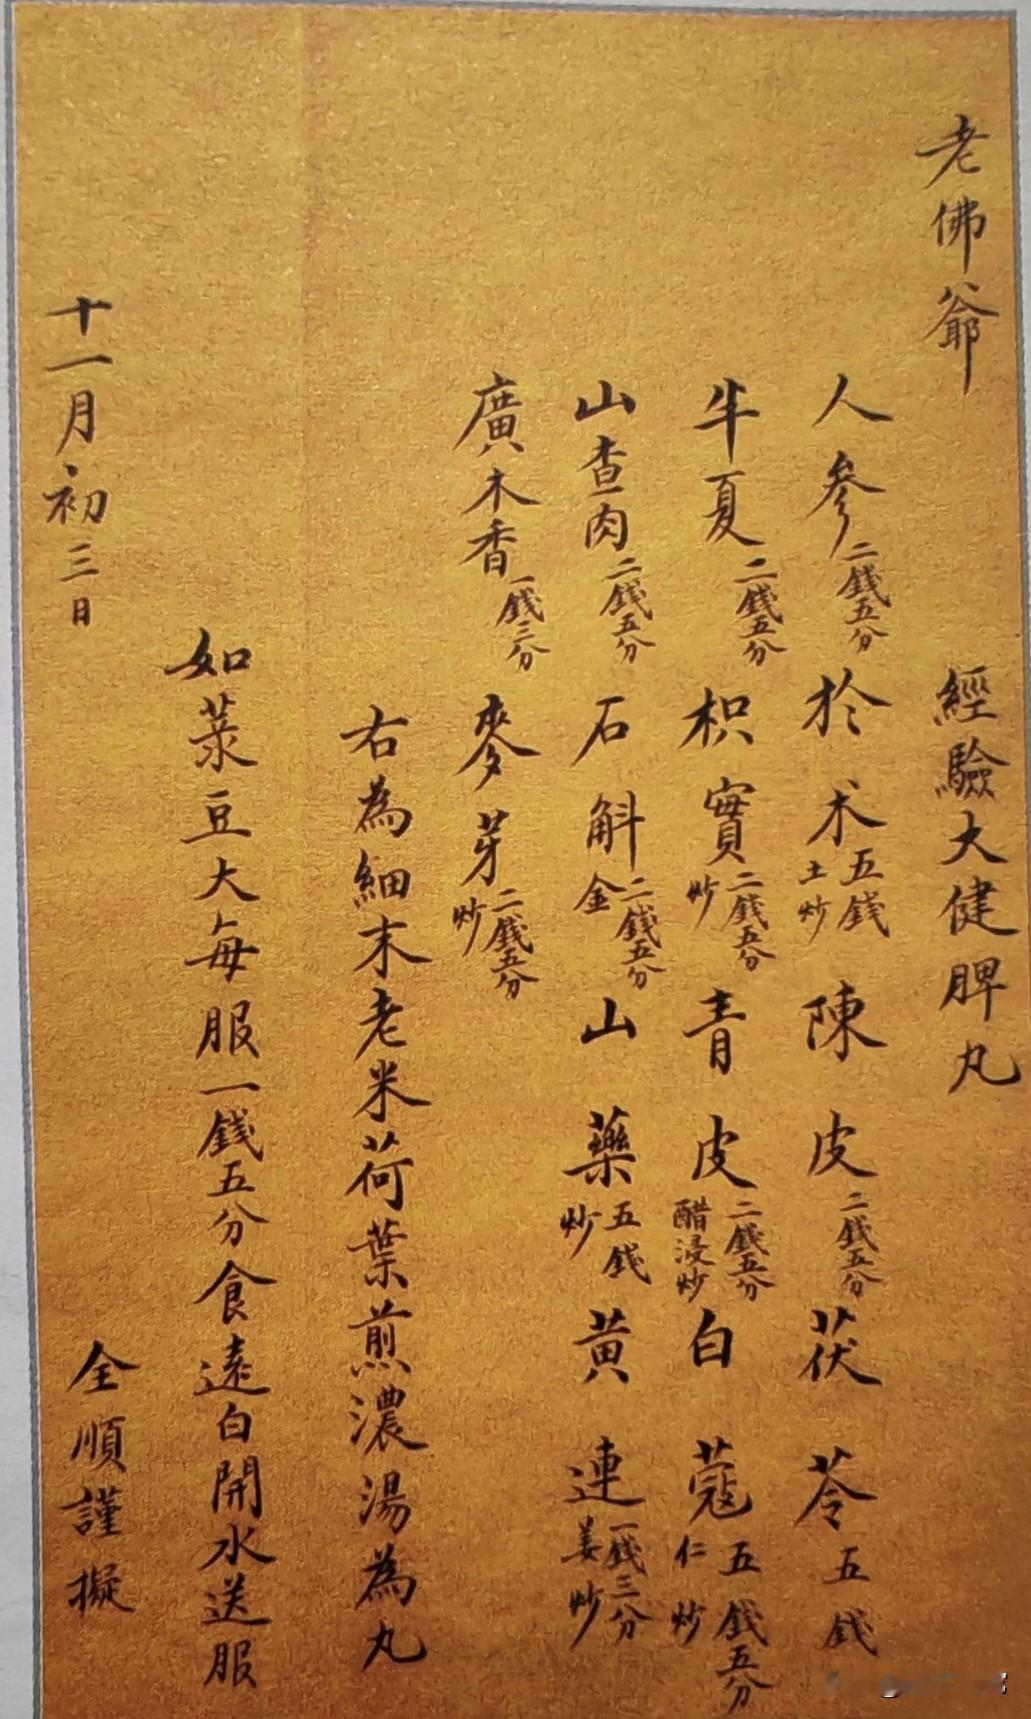 老佛爺 經驗大健脾丸
人參二錢五分 於术五錢土炒 陳皮二錢五分 茯苓五錢
半夏二錢五分 枳實二錢五分炒 青皮二錢五分醋浸炒 白蔻五錢五分仁炒
山查肉二錢五分 石斛二錢五分金 山藥五錢炒 黃連一錢三分姜炒
廣木香一錢三分 麥芽二錢五分炒
右為細末老米荷葉煎濃湯為丸
如菉豆大每服一錢五分食遠白開水送服
十一月初三日 全順謹擬